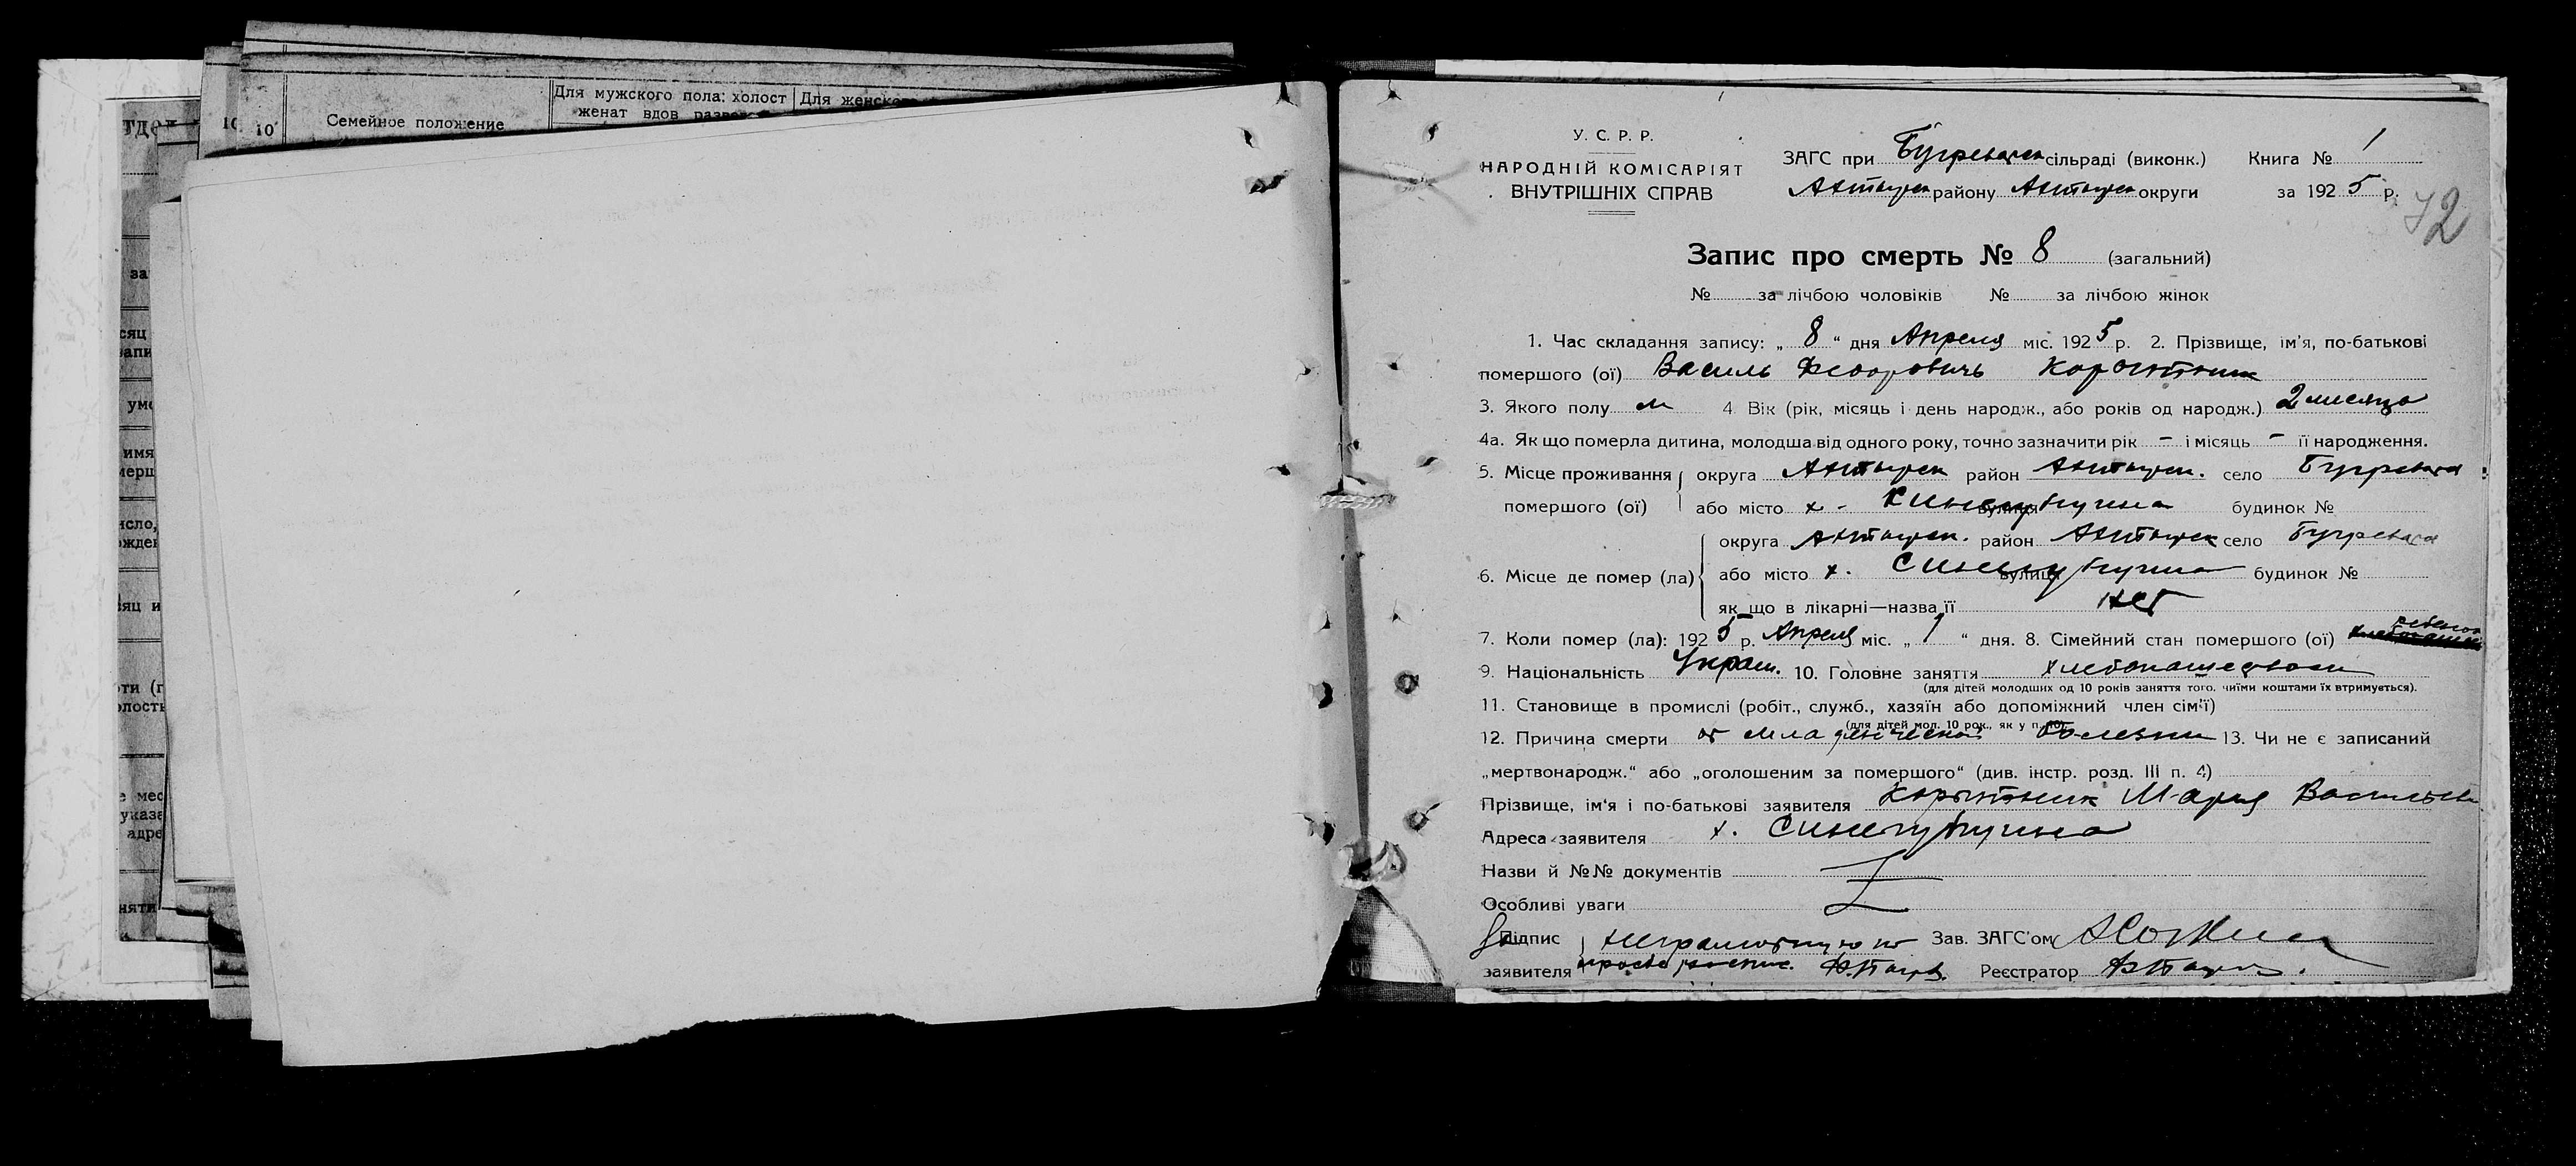 тдел
10
10
Семейное положение
Для мужского пола: холост
женат вдов
Для
за
сяц
запи
имя
исло,
ожден
яц и
оти (г
олость
е мес
указа
адре
няти
У. С. Р. Р.
НАРОДНІЙ КОМІСАРІЯТ
ВНУТРІШНІХ СПРАВ
ЗАГС при Бугреватск сільраді (виконк.) Книга № 1
Ахтырск району Ахтырск округи за 1925 р.
72
Запис про смерть № 8 (загальний)
№ за лічбою чоловіків № за лічбою жінок
1. Час складання запису: „ 8 “ дня Апреля міс. 1925 р. 2. Прізвище, ім'я, по-батькові
помершого (ої) Василь Федорович Корытник
3. Якого полу м 4. Вік (рік, місяць і день народж., або років од народж.) 2 месяца
4а. Як що померла дитина, молодша від одного року, точно зазначити рік – і місяць – її народження.
5. Місце проживання округа Ахтырск район Ахтырск. село Бугреватая
помершого (ої) або місто х. Синегубкина вулиця будинок №
округа Ахтырск. район Ахтырск село Бугреватая
6. Місце де помер (ла) або місто х. Синегубкина вулиця будинок №
як що в лікарні—назва її нет
7. Коли помер (ла): 1925 р. Апреля міс. „ 1 “ дня. 8. Сімейний стан помершого (ої) ребенок
9. Національність Украин. 10. Головне заняття хлебопашество
(для дітей молодших од 10 років заняття того, чиїми коштами їх втримується).
11. Становище в промислі (робіт., служб., хазяїн або допоміжний член сім'ї)
(для дітей мол. 10 рок., як у п. 10).
12. Причина смерти от младенческой болезни 13. Чи не є записаний
„мертвонародж.“ або „оголошеним за помершого“ (див. інстр. розд. III п. 4)
Прізвище, ім'я і по-батькові заявителя Корытник Марья Васильев
Адреса заявителя х. Синегубкина
Назви й №№ документів
Особливі уваги
За Підпис неграмотную по Зав. ЗАГС'ом
заявителя просьбе Реєстратор